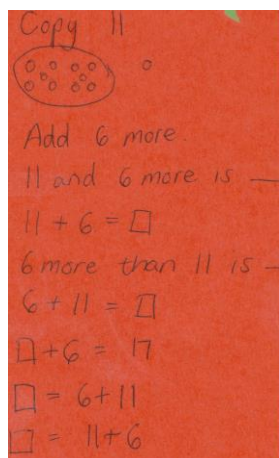 Copy 11
Add 6 more.
11 and 6 more is __
11 + 6 = □
6 more than 11 is _
6 + 11 = □
□ + 6 = 17
□ = 6 + 11
□ = 11 + 6